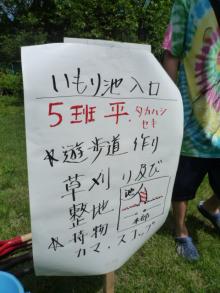 いもり池入口
5班 平. タカハシ
セキ
☆遊歩道作り
草刈り及び
整地
☆荷物
カマ・スコップ
池
本部